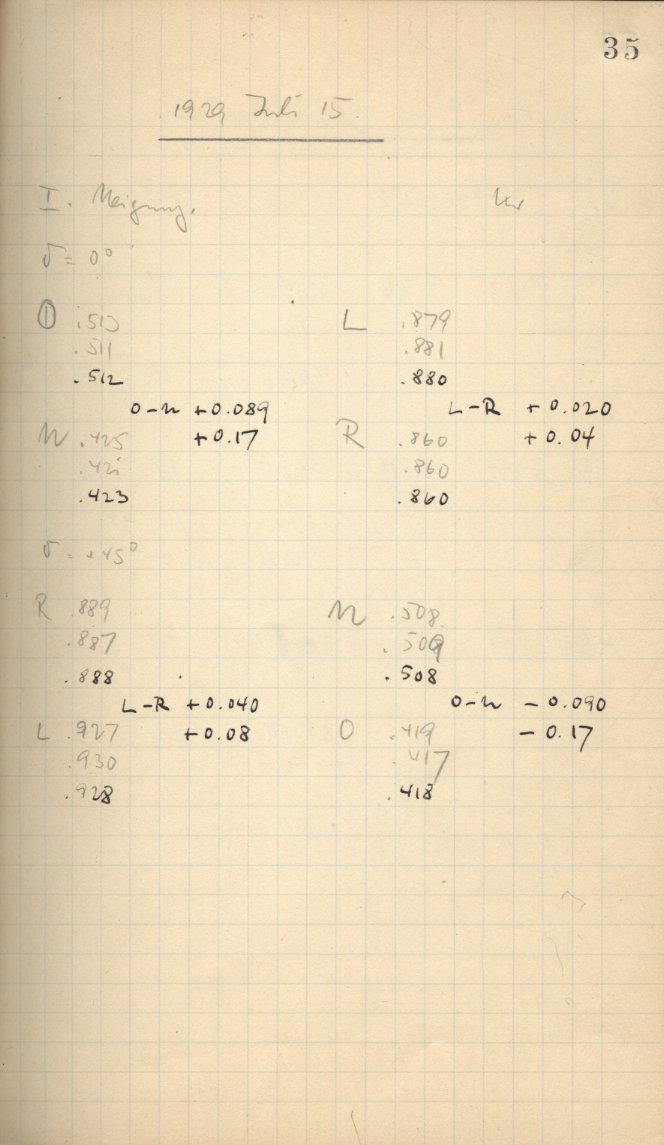 35
1929 Juli 15
I. Neigung.
δ = 0°
O .513 L .879
.511 .881
.512 .880
O-U +0.089 L-R +0.020
U .425 +0.17 R .860 +0.04
.421 .860
.423 .860
δ = +45°
R .889 U .508
.887 .509
.888 .508
L-R +0.040 O-U -0.090
L .927 +0.08 O .419 -0.17
.930 .417
.928 .418